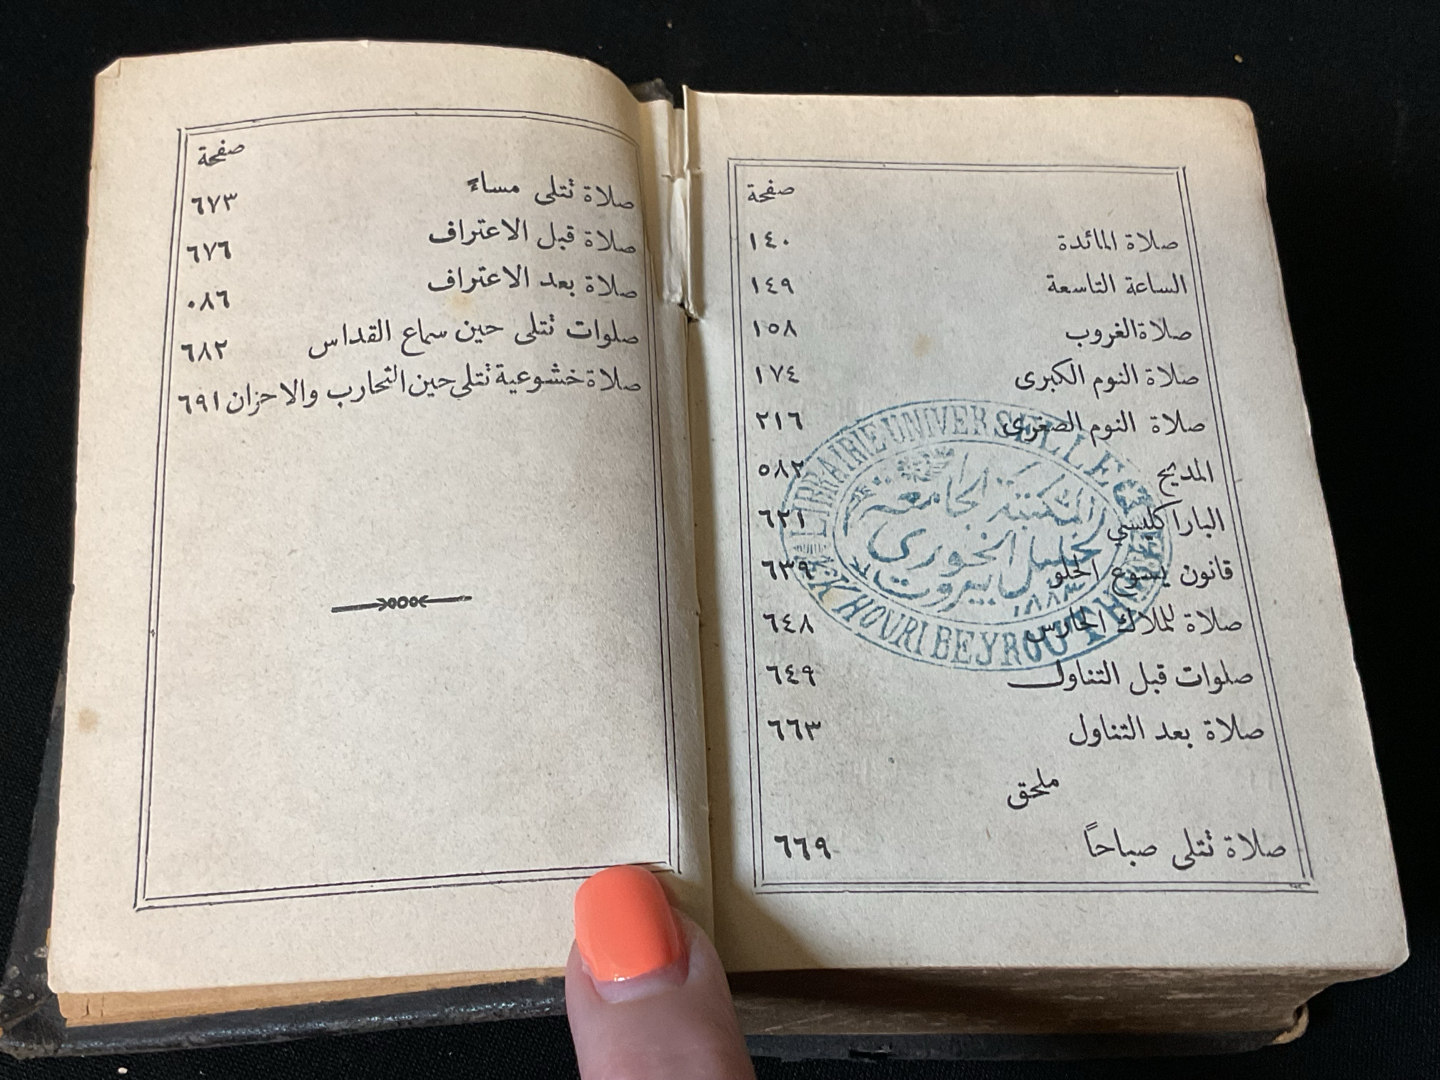 صفحة
صلاة المائدة ١٤٠
الساعة التاسعة ١٤٩
صلاةالغروب ١٥٨
صلاة النوم الكبرى ١٧٤
صلاة النوم الصغرى ٢١٦
المديح ٥٨٢
الباراكليسي ٦٢١
قانون يسوع الحلو ٦٣٩
صلاة للملاك الحارس ٦٤٨
صلوات قبل التناول ٦٤٩
صلاة بعد التناول ٦٦٣
ملحق
صلاة تتلى صباحاً ٦٦٩
LIBRAIRIE UNIVERSELLE
المكتبة الجامعة
لخليل الخوري
بيروت
١٨٨٣
KHOURI BEYROUTH
صفحة
صلاة تتلى مساءً ٦٧٣
صلاة قبل الاعتراف ٦٧٦
صلاة بعد الاعتراف ٠٨٦
صلوات تتلى حين سماع القداس ٦٨٢
صلاة خشوعية تتلى حين التجارب والاحزان ٦٩١